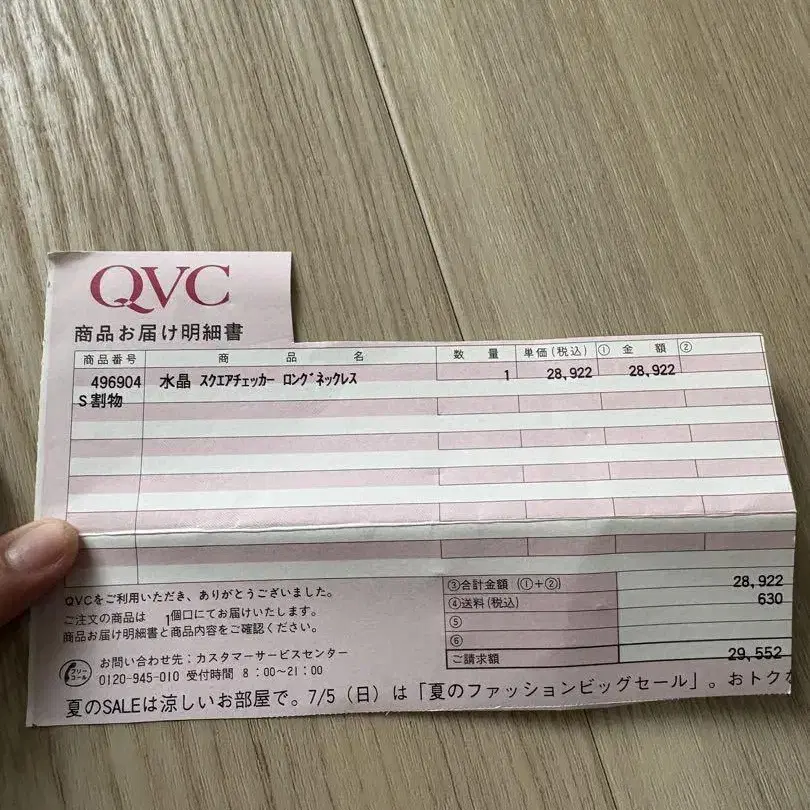 QVC
商品お届け明細書
商品番号 商品名 数量 単価(税込) ① 金額 ②
496904 水晶 スクエアチェッカー ロングネックレス 1 28,922 28,922
S割物
③合計金額 (①+②) 28,922
④送料(税込) 630
⑤
⑥
ご請求額 29,552
QVCをご利用いただき、ありがとうございました。
ご注文の商品は 1個口にてお届けいたします。
商品お届け明細書と商品内容をご確認ください。
フリーコール
お問い合わせ先:カスタマーサービスセンター
0120-945-010 受付時間 8:00~21:00
夏のSALEは涼しいお部屋で。7/5(日)は「夏のファッションビッグセール」。おトク